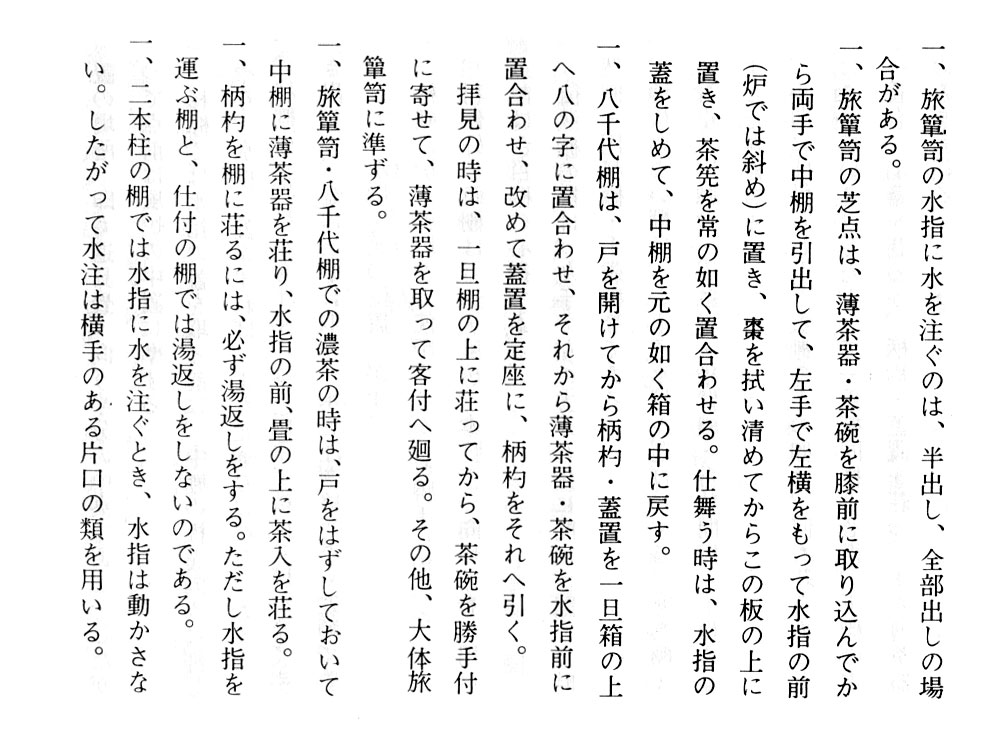 一、旅簞笥の水指に水を注ぐのは、半出し、全部出しの場
合がある。
一、旅簞笥の芝点は、薄茶器・茶碗を膝前に取り込んでか
ら両手で中棚を引出して、左手で左横をもって水指の前
(炉では斜め)に置き、棗を拭い清めてからこの板の上に
置き、茶筅を常の如く置合わせる。仕舞う時は、水指の
蓋をしめて、中棚を元の如く箱の中に戻す。
一、八千代棚は、戸を開けてから柄杓・蓋置を一旦箱の上
へ八の字に置合わせ、それから薄茶器・茶碗を水指前に
置合わせ、改めて蓋置を定座に、柄杓をそれへ引く。
拝見の時は、一旦棚の上に荘ってから、茶碗を勝手付
に寄せて、薄茶器を取って客付へ廻る。その他、大体旅
簞笥に準ずる。
一、旅簞笥・八千代棚での濃茶の時は、戸をはずしておいて
中棚に薄茶器を荘り、水指の前、畳の上に茶入を荘る。
一、柄杓を棚に荘るには、必ず湯返しをする。ただし水指を
運ぶ棚と、仕付の棚では湯返しをしないのである。
一、二本柱の棚では水指に水を注ぐとき、水指は動かさな
い。したがって水注は横手のある片口の類を用いる。